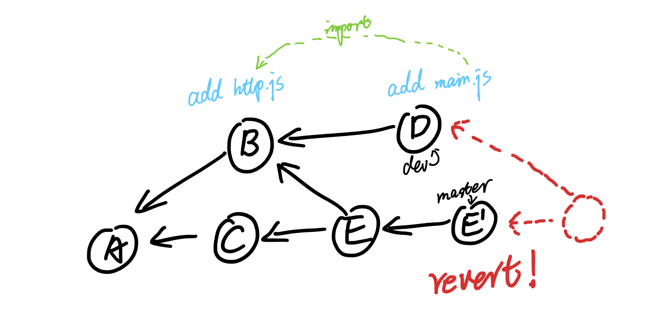 import
add http.js
add main.js
B
D
devJ
master
A
C
E
E'
revert!